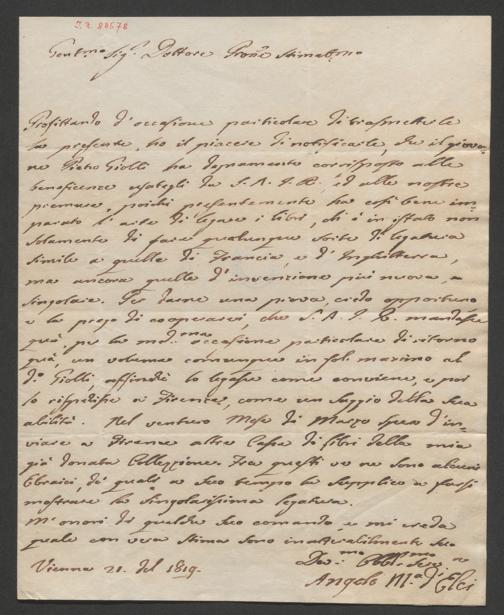 I.N. 88678
Gentmo Sigr. Dottore Prone Stimatmo
Profittando d'occasione particolare di trasmetterle
la presente, ho il piacere di notificarle, che il giova-
ne Pietro Giolli ha degnamente corrisposto alle
beneficenze usategli da S. A. I. R. ed alle nostre
premure, poichè presentemente ha così bene im-
parato l'arte di legare i libri, che è in istato non
solamente di fare qualunque sorte di legatura
simile a quelle di Francia, e d'Inghilterra,
ma ancora quelle d'invenzione più nuova, e
singolare. Per darne una prova, credo opportuno
e la prego di cooperarvi, che S. A. I. R. mandasse
quà, per la mdma occasione particolare di ritorno
quà, un volume comunque in fol. massimo al
do Giolli, affinchè lo legasse come conviene, e poi
lo rispedisse a Firenze, come un saggio della sua
abilità. Nel venturo Mese di Marzo spero d'in-
viare a Firenze altre Casse di libri della mia
già donata Collezione. Fra questi ve ne sono alcuni
Ebraici, de' quali a suo tempo la supplico a farsi
mostrare la singolarissima legatura.
M'onori di qualche suo comando e mi creda
quale con vera stima sono inalterabilmente suo
Vienna 21. del 1819.
Devmo Obblmo Servre
Angelo Ma. d'Elci